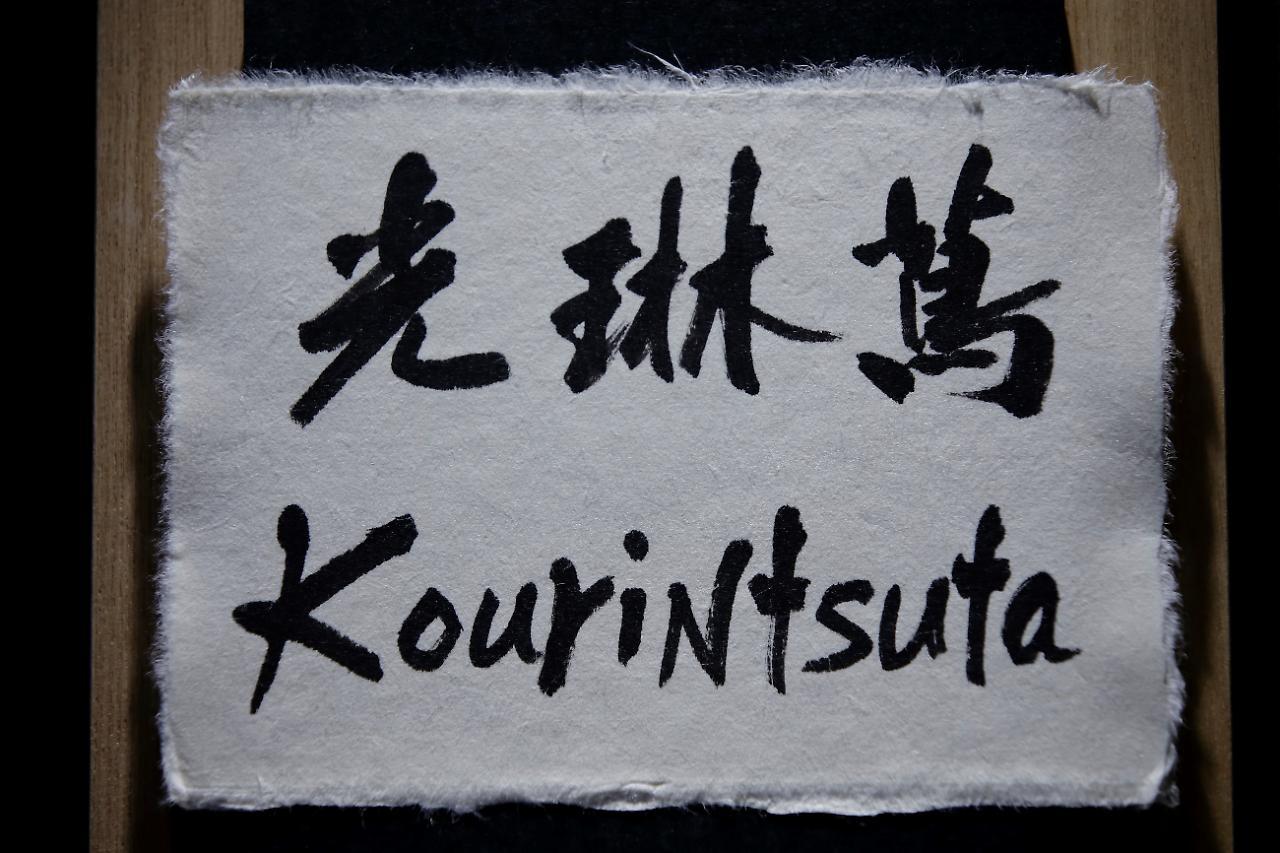 光琳蔦
Kourintsuta